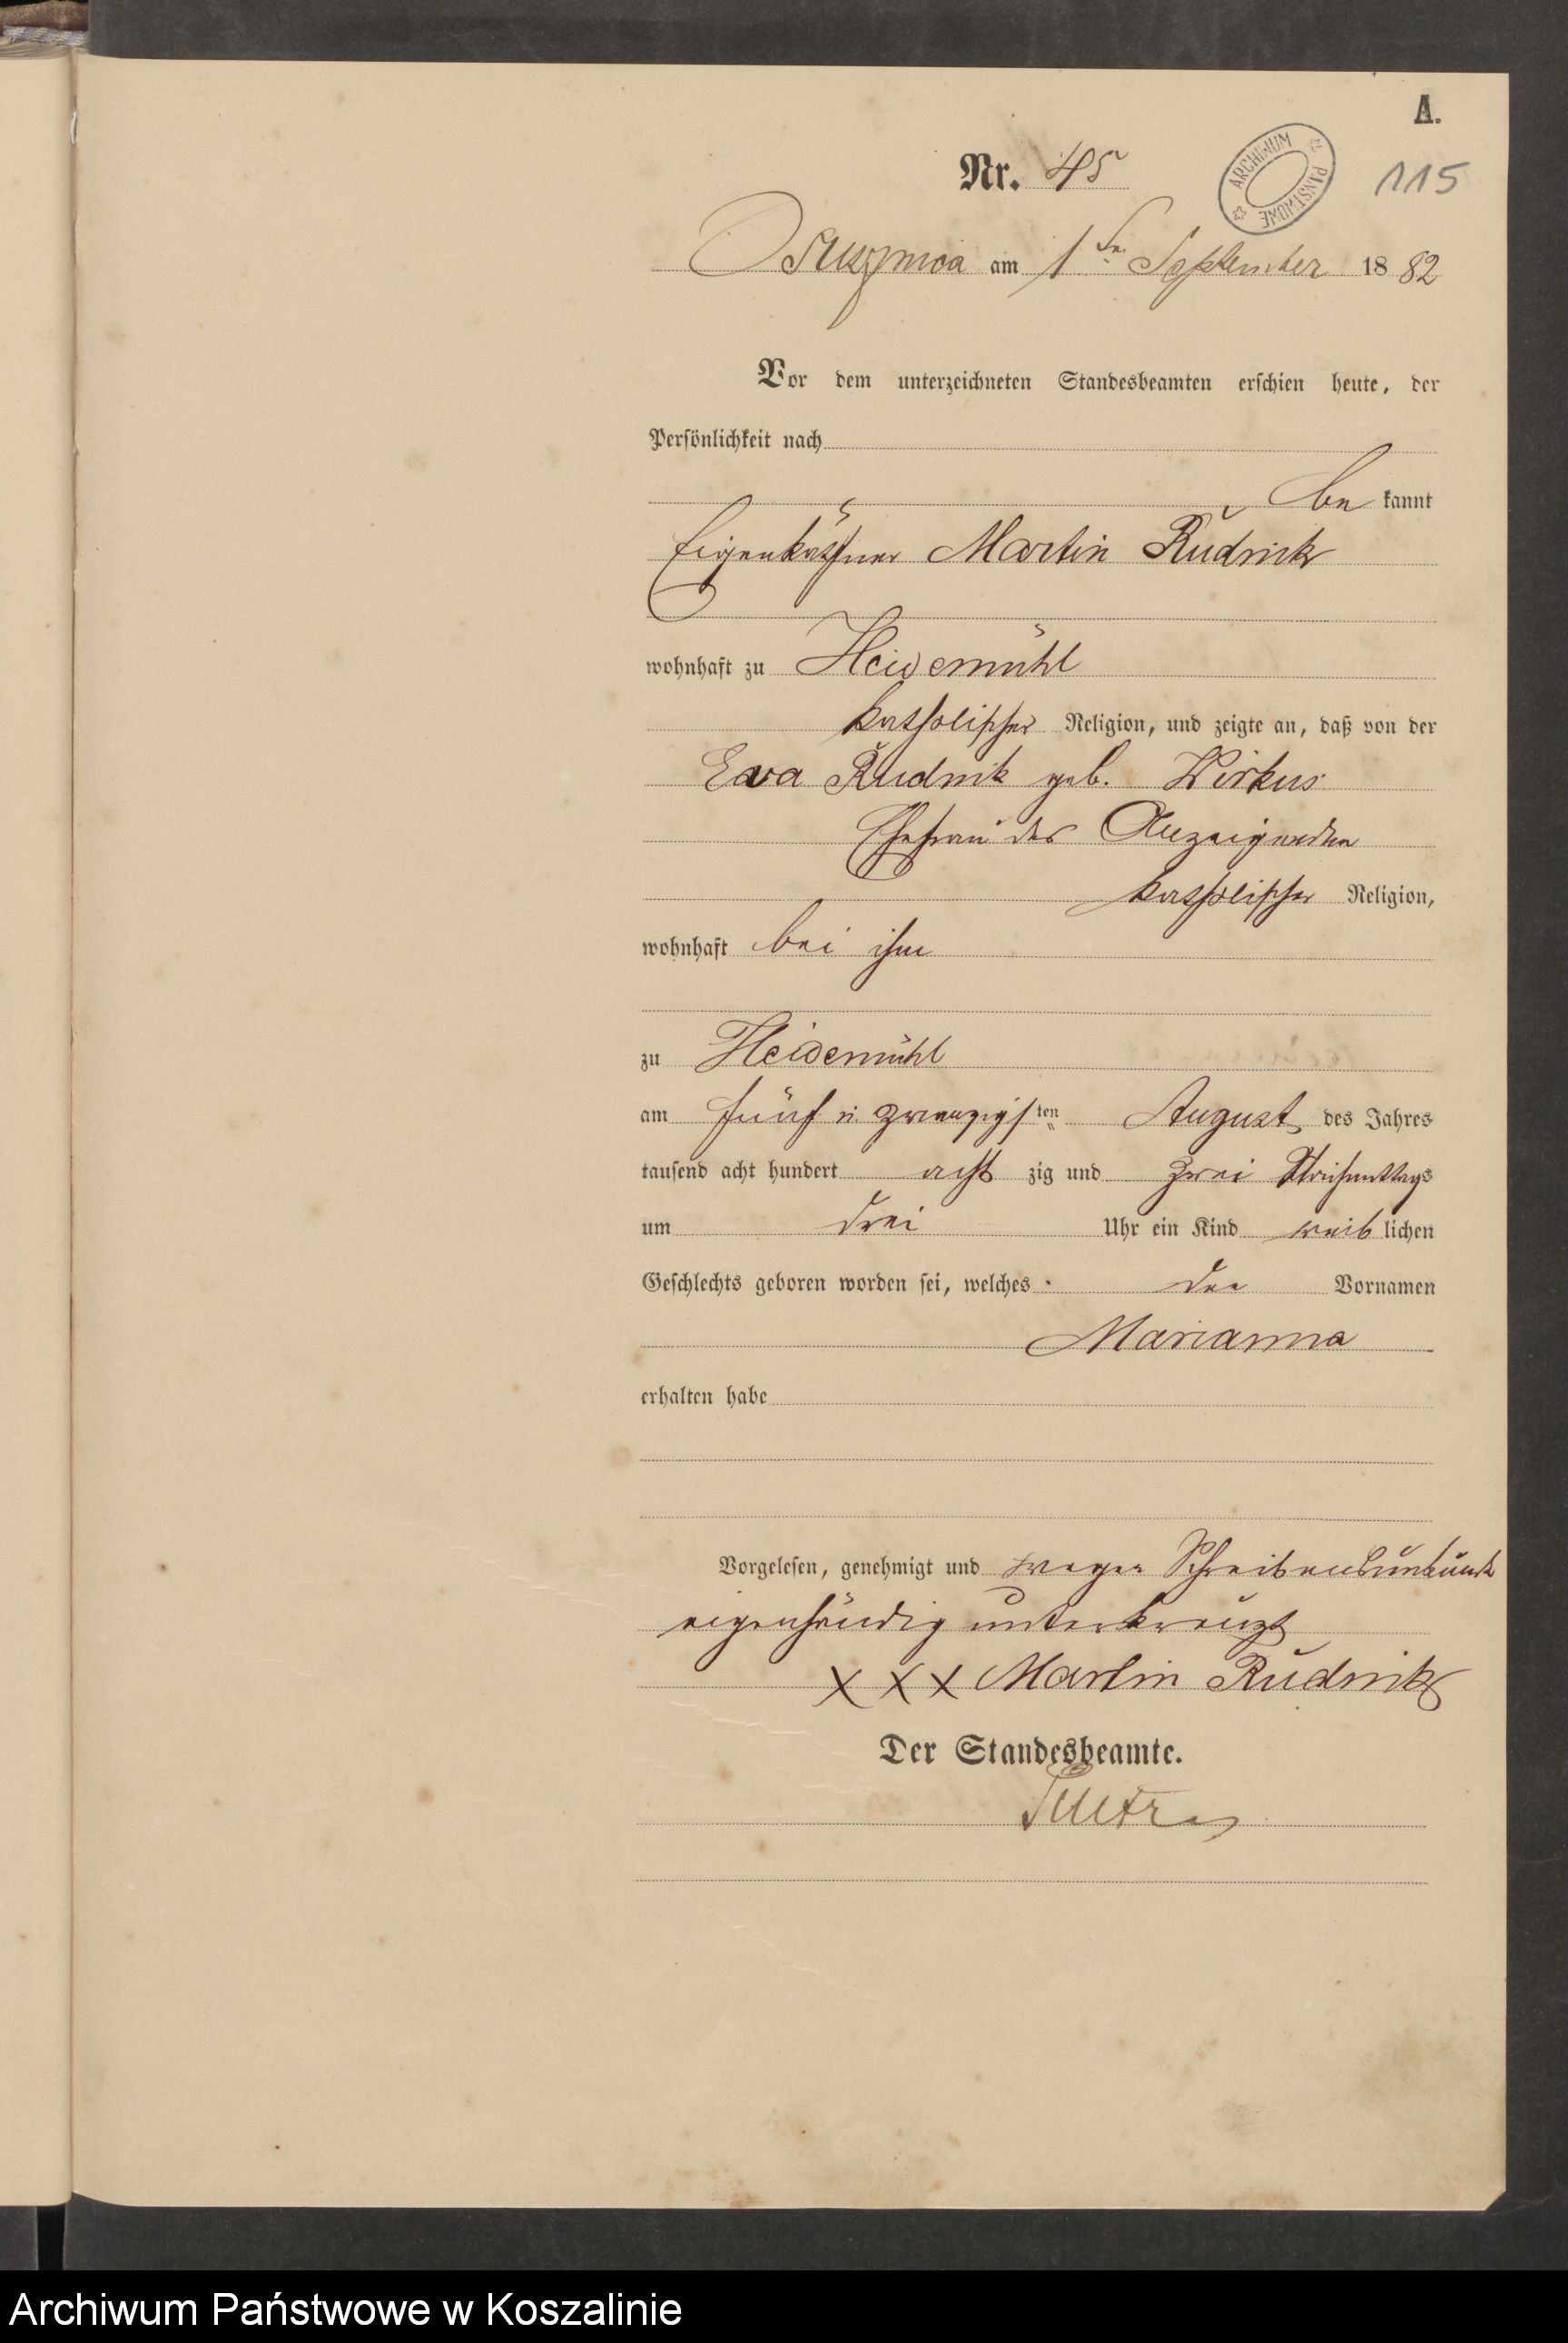 A.
Nr. 45
ARCHIWUM PAŃSTWOWE
115
Osusznica am 1ten September 1882
Vor dem unterzeichneten Standesbeamten erschien heute, der
Persönlichkeit nach
be kannt
Eigenkäthner Martin Rudnick
wohnhaft zu Heidemühl
katholischer Religion, und zeigte an, daß von der
Eva Rudnik geb. Wirkus
Ehefrau des Anzeigenden
katholischer Religion,
wohnhaft bei ihm
zu Heidemühl
am fünf u. zwanzigsten August des Jahres
tausend acht hundert acht zig und zwei Nachmittags
um drei Uhr ein Kind weib lichen
Geschlechts geboren worden sei, welches den Vornamen
Marianna
erhalten habe
Vorgelesen, genehmigt und wegen Schreibensunkunde
eigenhändig unterkreuzt
X X X Martin Rudnik
Der Standesbeamte.
Archiwum Państwowe w Koszalinie